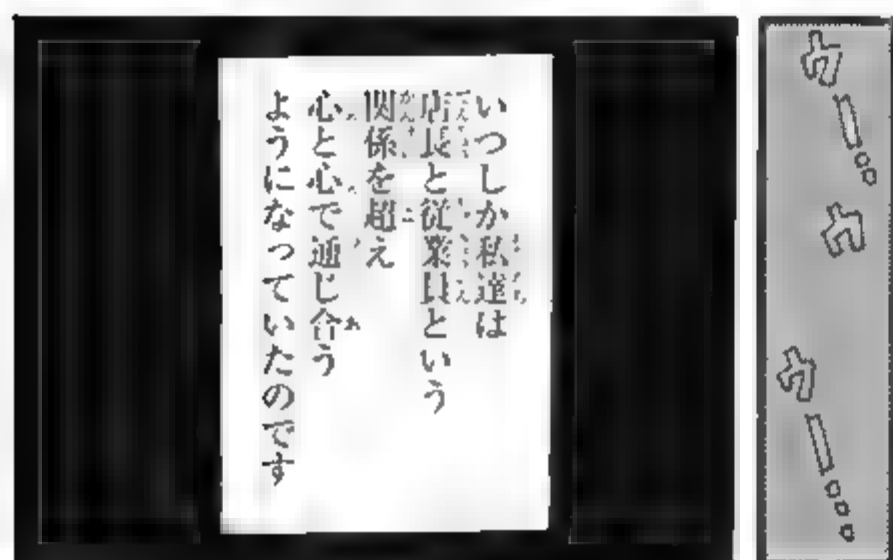 いつしか私達は
店長と従業員という
関係を超え
心と心で通じ合う
ようになっていたのです
ウー…
ウ
ウー…